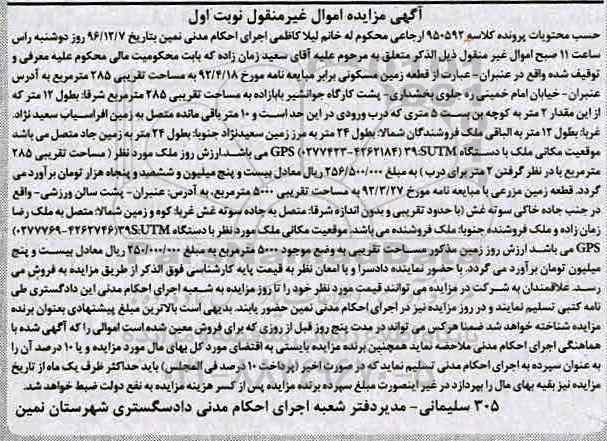 آگهی مزایده اموال غیرمنقول نوبت اول
حسب محتویات پرونده کلاسه ۹۵۰۵۹۲ ارجاعی محکوم له خانم لیلا کاظمی اجرای احکام مدنی نمین بتاریخ ۹۶/۱۲/۷ روز دوشنبه راس
ساعت ۱۱ صبح اموال غیر منقول ذیل الذکر متعلق به مرحوم علیه آقای سعید زمان زاده که بابت محکومیت مالی محکوم علیه معرفی و
توقیف شده واقع در عنبران- عبارت از قطعه زمین مسکونی برابر مبایعه نامه مورخ ۹۲/۴/۱۸ به مساحت تقریبی ۲۸۵ مترمربع به آدرس
عنبران- خیابان امام خمینی ره جلوی بخشداری- پشت کارگاه جوانشیر بابازاده به مساحت تقریبی ۲۸۵ مترمربع شرقا: بطول ۱۲ متر که
از این مقدار ۲ متر به کوچه بن بست ۵ متری که درب ورودی در این حد است و ۱۰ متر باقی مانده متصل به زمین افراسیاب سعید نژاد.
غربا: بطول ۱۲ متر به الباقی ملک فروشندگان شمالا: بطول ۲۴ متر به مرز زمین سعیدنژاد جنوبا: بطول ۲۴ متر به زمین جاد متصل می باشد
موقعیت مکانی ملک با دستگاه GPS (۰۲۷۷۴۲۳-۴۲۶۲۱۸۴) ۳۹:SUTM می باشد.ارزش روز ملک مورد نظر ( مساحت تقریبی ۲۸۵
مترمربع با در نظر گرفتن ۲ متر برای درب ) به مبلغ ۲۵۶/۵۰۰/۰۰۰ ریال معادل بیست و پنج میلیون و ششصد و پنجاه هزار تومان برآورد می
گردد. قطعه زمین مزروعی با مبایعه نامه مورخ ۹۲/۳/۲۷ به مساحت تقریبی ۵۰۰۰ مترمربع، به آدرس: عنبران- پشت سالن ورزشی- واقع
در جنب جاده خاکی سوته غش (با حدود تقریبی و بدون اندازه شرقا: متصل به جاده سوته غش غربا: کوه و زمین شمالا: متصل به ملک رضا
زمان زاده و ملک فروشنده جنوبا: ملک فروشنده می باشد. موقعیت مکانی ملک مورد نظر با دستگاه ۳۹S:UTM(۰۲۷۷۷۶۹-۴۲۶۲۷۴۶)
GPS می باشد ارزش روز زمین مذکور مساحت تقریبی به وضع موجود ۵۰۰۰ مترمربع به مبلغ ۲۵۰/۰۰۰/۰۰۰ ریال معادل بیست و پنج
میلیون تومان برآورد می گردد. با حضور نماینده دادسرا و با امعان نظر به قیمت پایه کارشناسی فوق الذکر از طریق مزایده به فروش می
رسد. علاقمندان به شرکت در مزایده می توانند قیمت مورد نظر خود را تا روز مزایده به شعبه اجرای احکام مدنی این دادگستری طی
نامه کتبی تسلیم نمایند و در روز مزایده نیز در اجرای احکام مدنی نمین حضور یابند. بدیهی است بالاترین مبلغ پیشنهادی بعنوان برنده
مزایده شناخته خواهد شد ضمنا هرکس می تواند در مدت پنج روز قبل از روزی که برای فروش معین شده است اموالی را که آگهی شده با
هماهنگی اجرای احکام مدنی ملاحظه نماید همچنین برنده مزایده بایستی به اقتضای مورد کل بهای مال مورد مزایده و یا ۱۰ درصد آن را
به عنوان سپرده به اجرای احکام مدنی تسلیم نماید که در صورت اخیر (پرداخت ۱۰ درصد فی المجلس) باید حداکثر ظرف یک ماه از تاریخ
مزایده نیز بقیه بهای مال را بپردازد در غیر اینصورت مبلغ سپرده برنده مزایده پس از کسر هزینه مزایده به نفع دولت ضبط خواهد شد.
۳۰۵ سلیمانی- مدیردفتر شعبه اجرای احکام مدنی دادسگستری شهرستان نمین